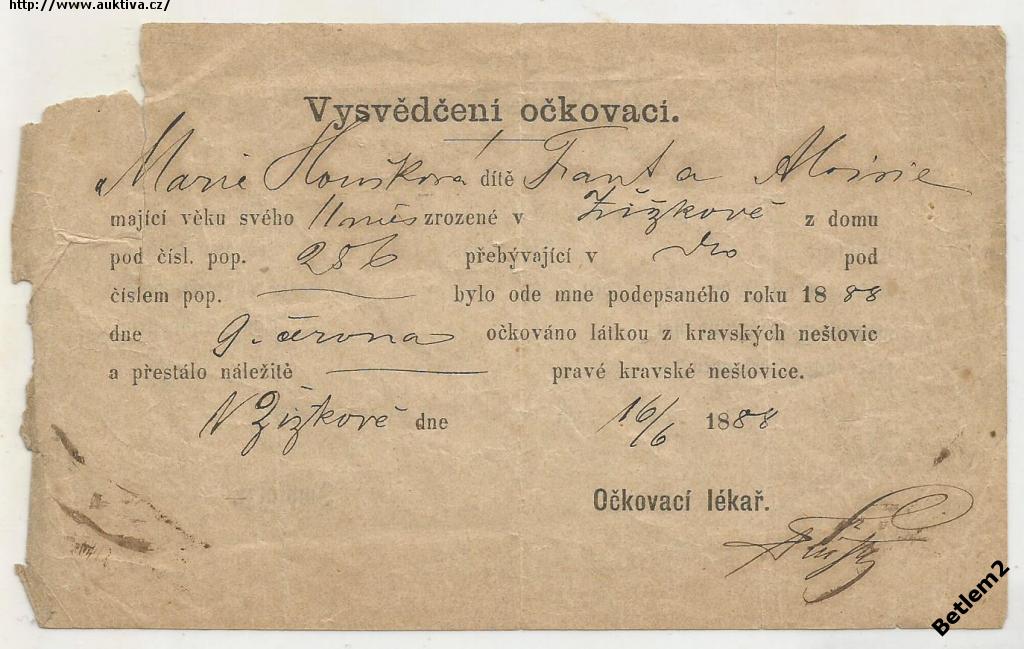 http://www.auktiva.cz/
Vysvědčení očkovací.
Marie Houšková dítě Frant a Aloisie
mající věku svého 11 měs zrozené v Žižkově z domu
pod čísl. pop. 286 přebývající v dto pod
číslem pop. bylo ode mne podepsaného roku 1888
dne 9. června očkováno látkou z kravských neštovic
a přestálo náležitě pravé kravské neštovice.
V Žižkově dne 16/6 1888
Očkovací lékař.
Betlem2